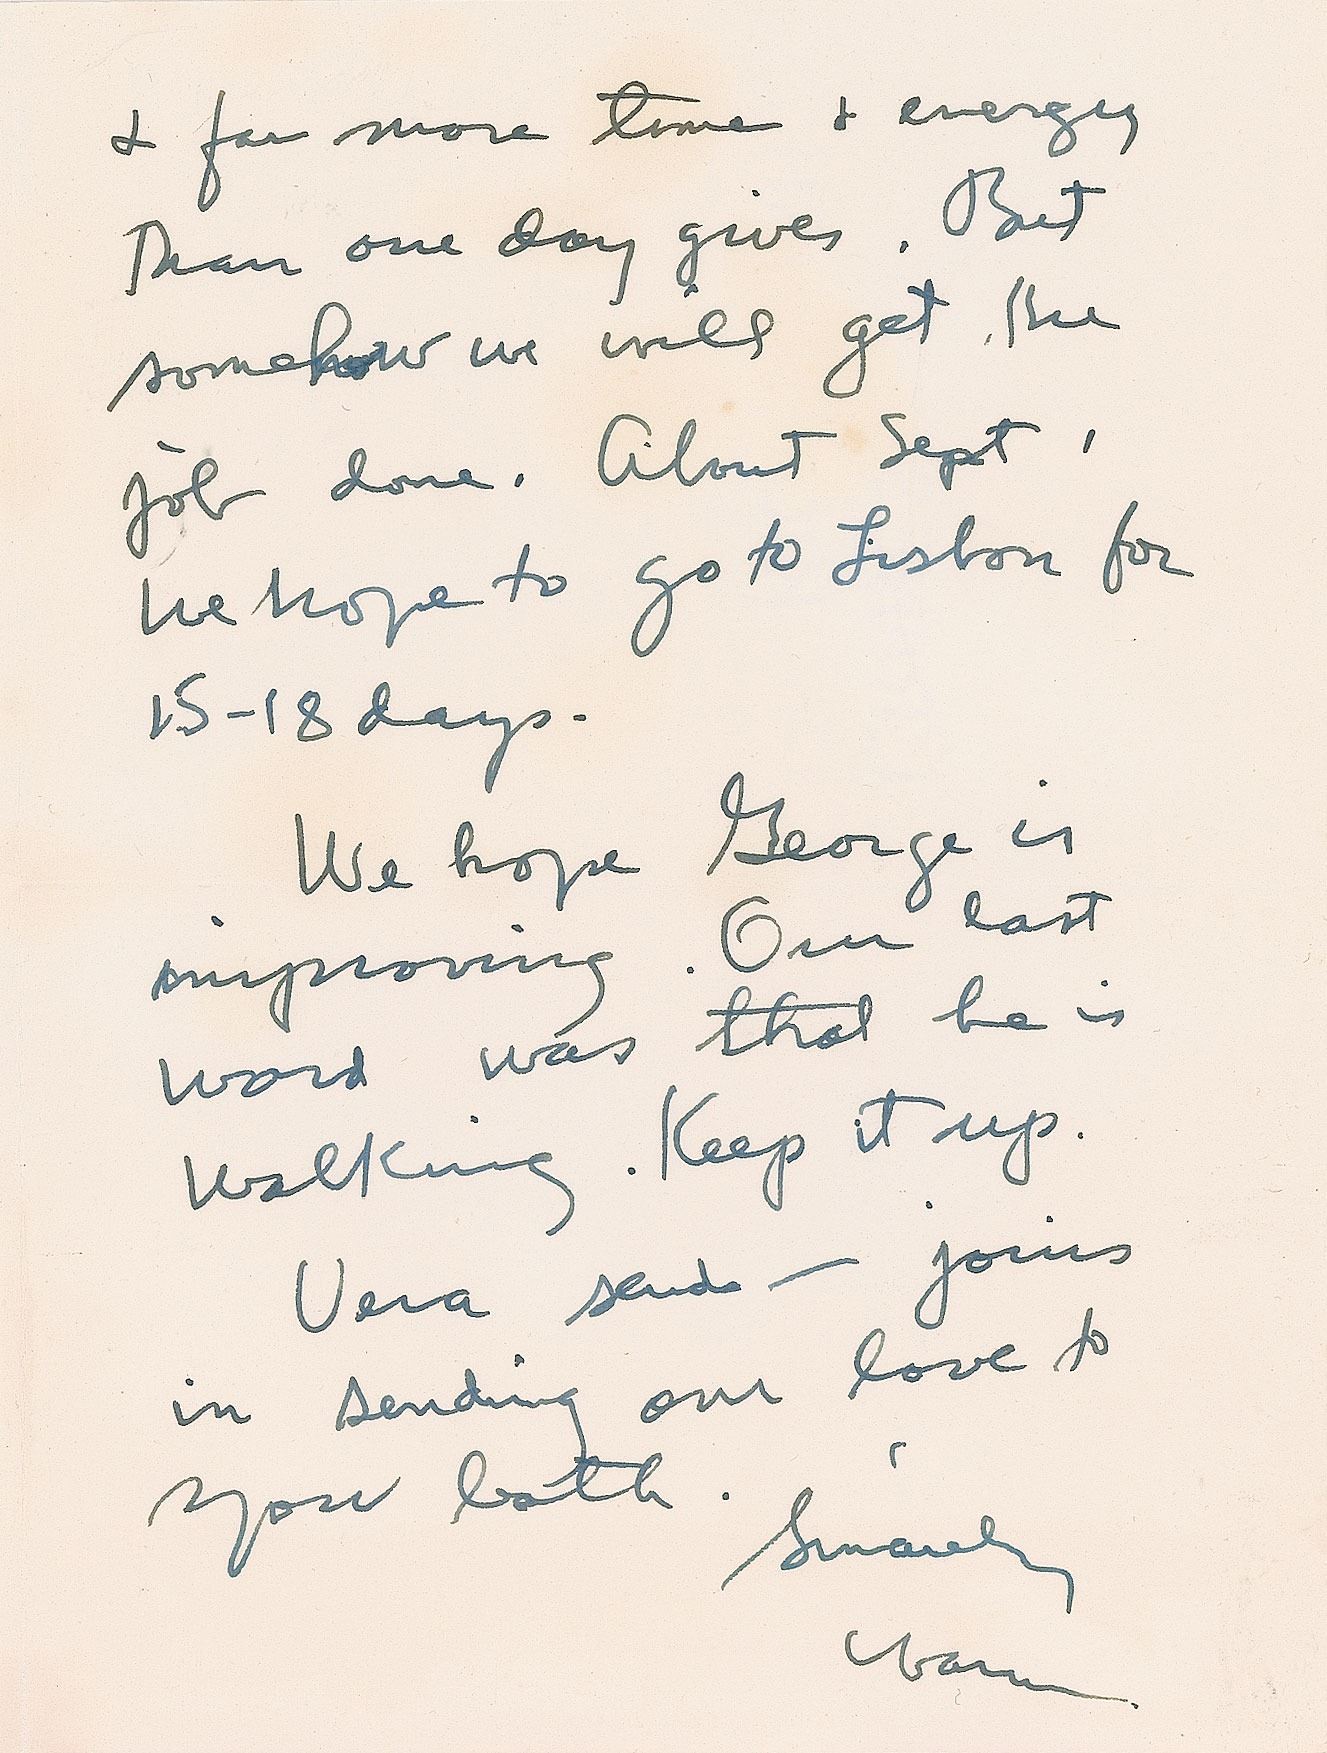 & far more time & energy
than one day gives. But
somehow we will get the
job done. About Sept 1
we hope to go to Lisbon for
15-18 days.
We hope George is
improving. Our last
word was that he is
walking. Keep it up.
Vera sends — joins
in sending our love to
you both.
Sincerely